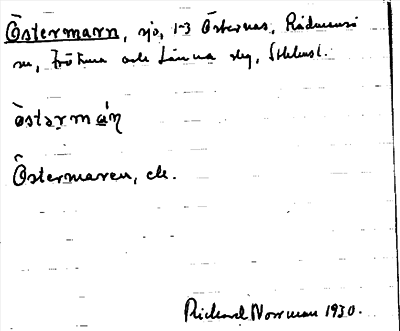 Östermarn, sjö, 1-3 Östernäs, Rådmansö
sn, Frötuna och Länna slg, Sthlmsl.
òstərmá̤ɳ
Östermaren, ek.
Richard Norrman 1930.